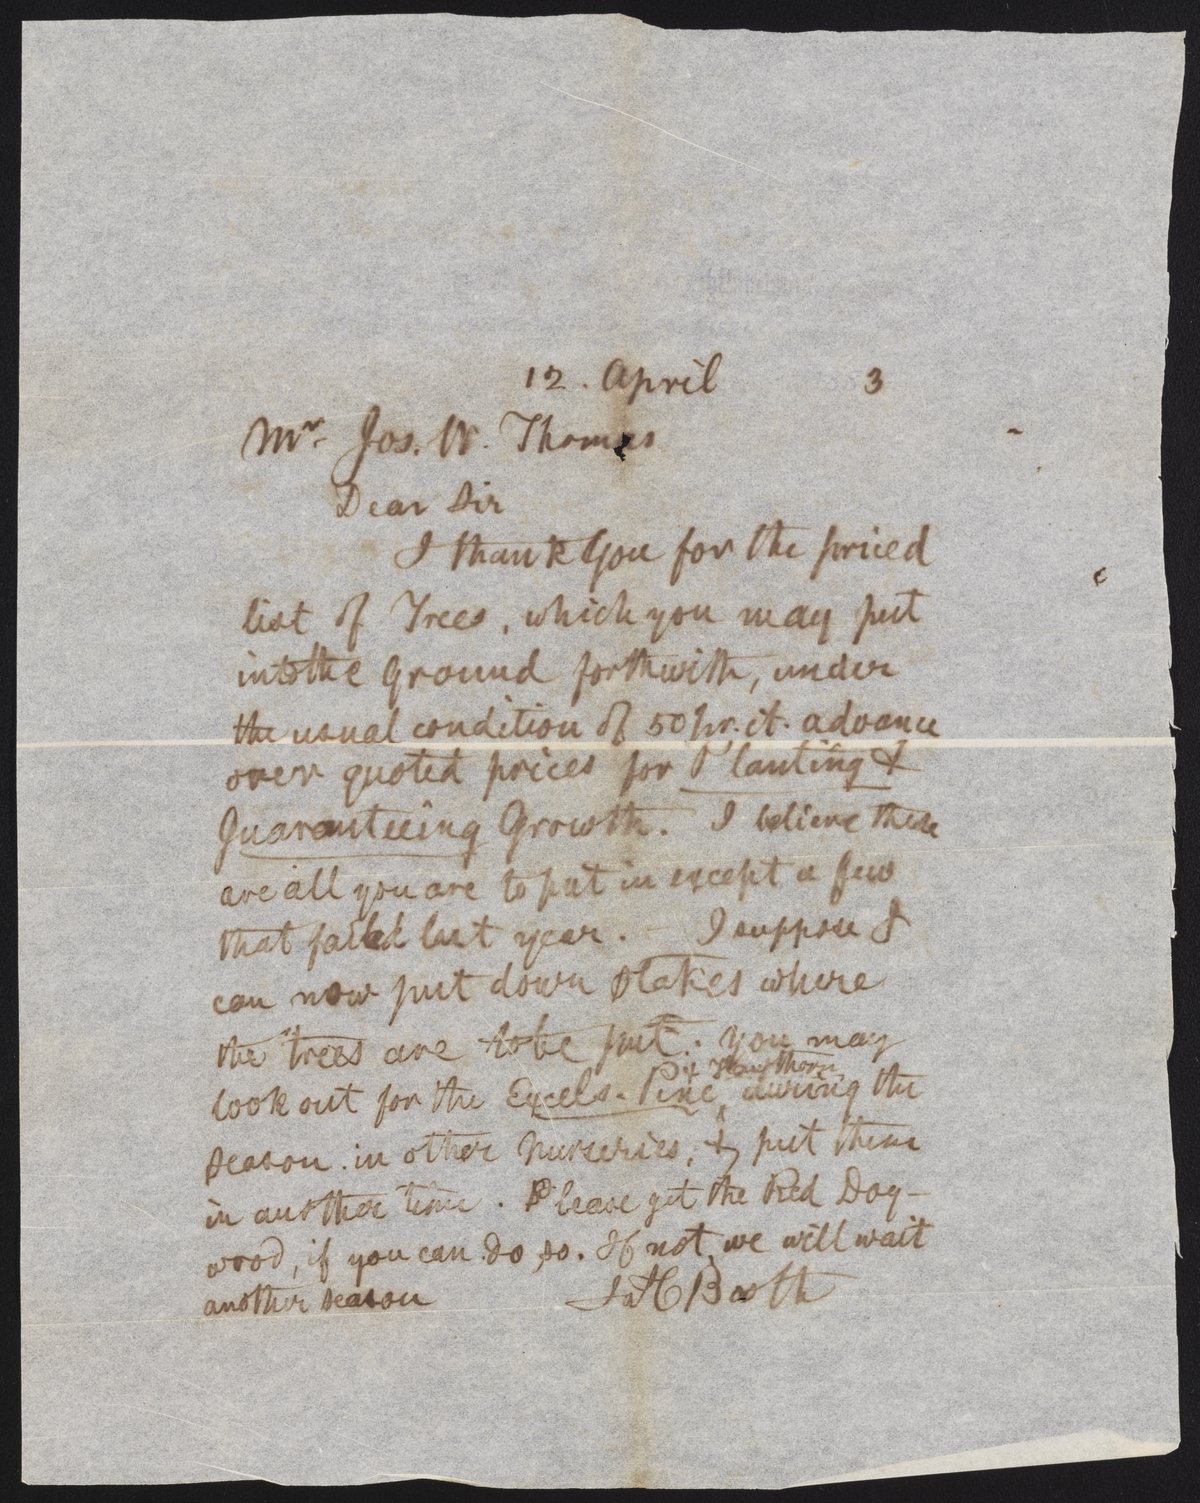 12. April 3
Mr. Jos. W. Thomas
Dear Sir
I thank you for the priced
list of Trees, which you may put
into the ground forthwith, under
the usual condition of 50 pr. ct. advance
over quoted prices for Planting &
Guaranteeing Growth. I believe these
are all you are to put in except a few
that failed last year. - I suppose I
can now put down stakes where
the trees are to be put. You may
& Hawthorn
look out for the Excels. Pine ^ during the
season in other Nurseries, & put them
in another time. Please get the Red Dog-
wood, if you can do so. If not, we will wait
another season Booth